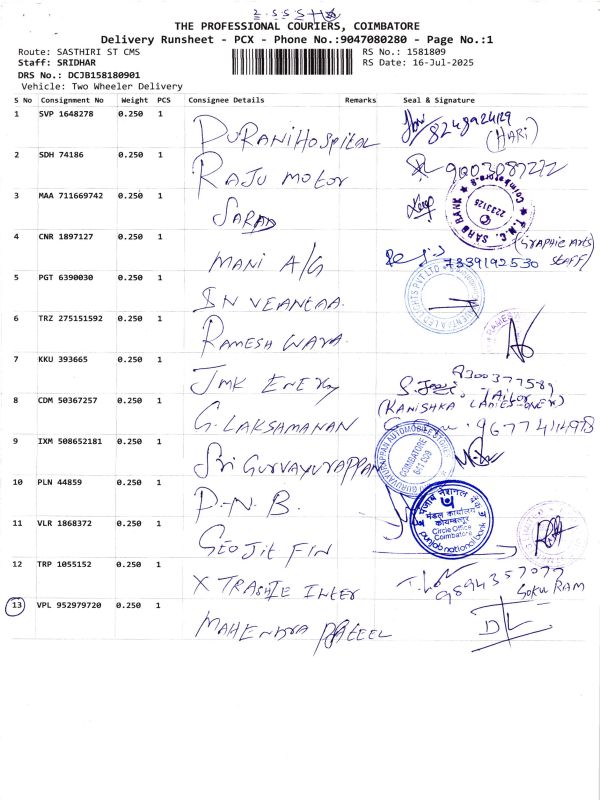 THE PROFESSIONAL COURIERS, COIMBATORE
Delivery Runsheet - PCX - Phone No.:9047080280 - Page No.:1
Route: SASTHIRI ST CMS
RS No.: 1581809
Staff: SRIDHAR
RS Date: 16-Jul-2025
DRS No.: DCJB158180901
Vehicle: Two Wheeler Delivery
S No Consignment No Weight PCS Consignee Details Remarks Seal & Signature
1 SVP 1648278 0.250 1 DURANI HOSPITAL 8248924129 (HARI)
2 SDH 74186 0.250 1 RAJU MOTOR 9003087272
3 MAA 711669742 0.250 1 SARAD
4 CNR 1897127 0.250 1 MANI A/G 7339192530 (GRAPHIC ARTS STAFF)
5 PGT 6390030 0.250 1 SN
6 TRZ 275151592 0.250 1 RAMESH WARA
7 KKU 393665 0.250 1 JMK ENERGY
8 CDM 50367257 0.250 1 G. LAKSAMANAN (KANISHKA LADIES
9 IXM 508652181 0.250 1 SRI GURVAYURAPPAN COIMBATORE
10 PLN 44859 0.250 1 P.N.B. पंजाब नैशनल बैंक मंडल कार्यालय कोयम्बत्तूर Circle Office Coimbatore punjab national bank
11 VLR 1868372 0.250 1 GEOJIT FIN
12 TRP 1055152 0.250 1 X INTER 9894357077 GOKU RAM
13 VPL 952979720 0.250 1 MAHENDRA